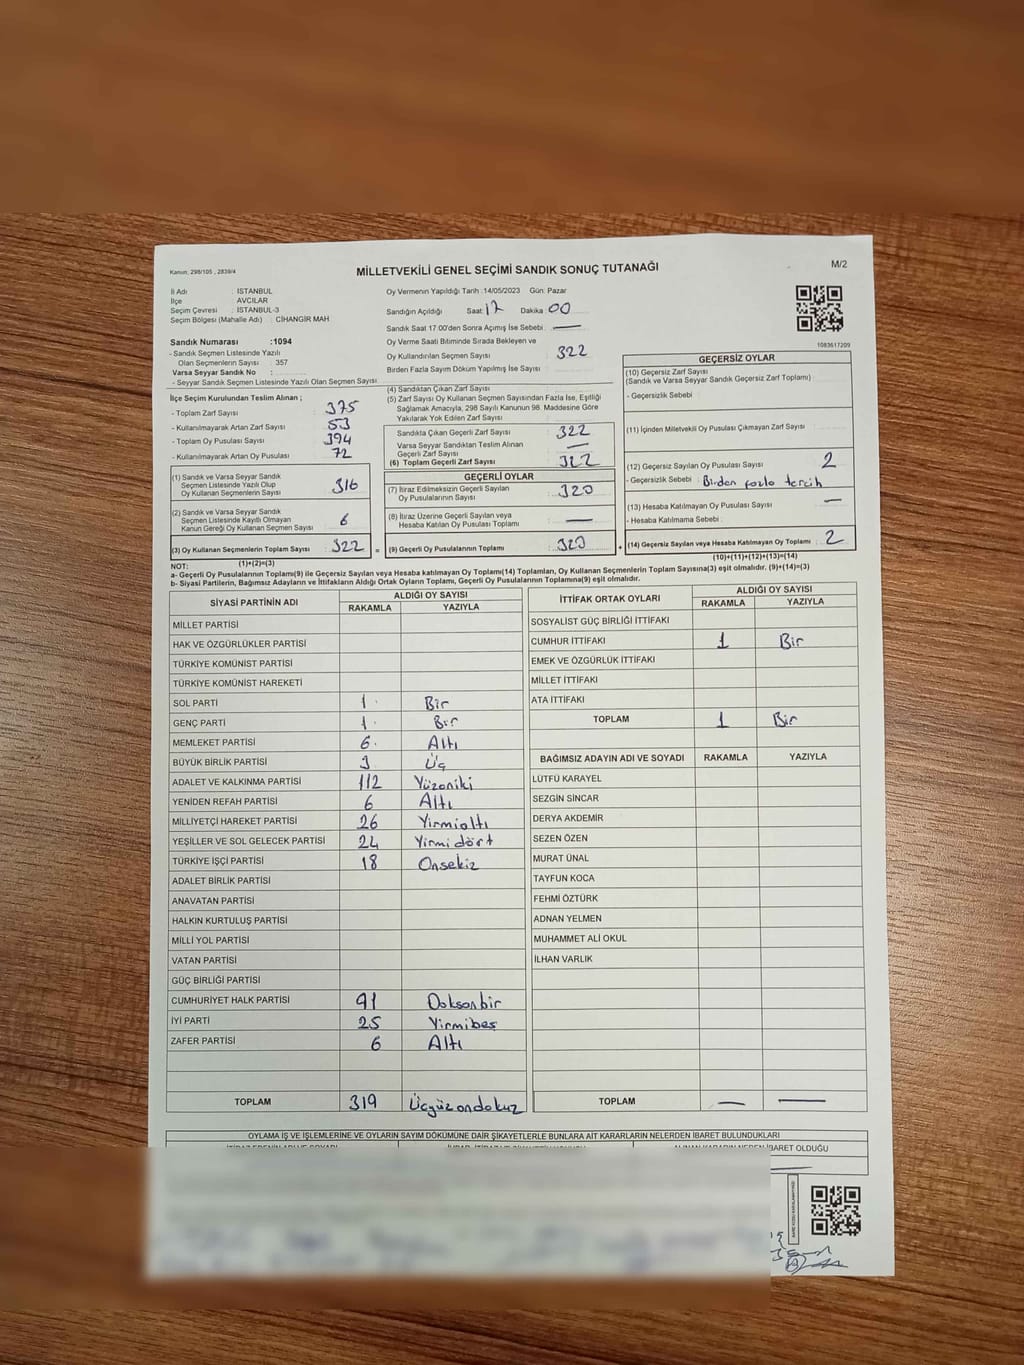 Kanun; 298/105 , 2839/4
MİLLETVEKİLİ GENEL SEÇİMİ SANDIK SONUÇ TUTANAĞI
M/2
İl Adı : İSTANBUL
İlçe AVCILAR
Seçim Çevresi : İSTANBUL-3
Seçim Bölgesi (Mahalle Adı) : CİHANGİR MAH.
Oy Vermenin Yapıldığı Tarih :14/05/2023 Gün: Pazar
Sandığın Açıldığı Saat: 17 Dakika: 00
Sandık Saat 17:00'den Sonra Açımış İse Sebebi : —
Oy Verme Saati Bitiminde Sırada Bekleyen ve
Oy Kullandırılan Seçmen Sayısı : 322
Birden Fazla Sayım Döküm Yapılmış İse Sayısı :
1083617209
Sandık Numarası :1094
- Sandık Seçmen Listesinde Yazılı
Olan Seçmenlerin Sayısı : 357
Varsa Seyyar Sandık No :
- Seyyar Sandık Seçmen Listesinde Yazılı Olan Seçmen Sayısı
İlçe Seçim Kurulundan Teslim Alınan ;
- Toplam Zarf Sayısı : 375
- Kullanılmayarak Artan Zarf Sayısı : 53
- Toplam Oy Pusulası Sayısı : 394
- Kullanılmayarak Artan Oy Pusulası : 72
(1) Sandık ve Varsa Seyyar Sandık
Seçmen Listesinde Yazılı Olup
Oy Kullanan Seçmenlerin Sayısı : 316
(2) Sandık ve Varsa Seyyar Sandık
Seçmen Listesinde Kayıtlı Olmayan
Kanun Gereği Oy Kullanan Seçmen Sayısı : 6
(3) Oy Kullanan Seçmenlerin Toplam Sayısı : 322
(1)+(2)=(3)
(4) Sandıktan Çıkan Zarf Sayısı
(5) Zarf Sayısı Oy Kullanan Seçmen Sayısından Fazla İse, Eşitliği
Sağlamak Amacıyla, 298 Sayılı Kanunun 98. Maddesine Göre
Yakılarak Yok Edilen Zarf Sayısı :
Sandıkta Çıkan Geçerli Zarf Sayısı : 322
Varsa Seyyar Sandıktan Teslim Alınan
Geçerli Zarf Sayısı : —
(6) Toplam Geçerli Zarf Sayısı : 322
GEÇERLİ OYLAR
(7) İtiraz Edilmeksizin Geçerli Sayılan
Oy Pusulalarının Sayısı : 320
(8) İtiraz Üzerine Geçerli Sayılan veya
Hesaba Katılan Oy Pusulası Toplamı : —
(9) Geçerli Oy Pusulalarının Toplamı : 320
GEÇERSİZ OYLAR
(10) Geçersiz Zarf Sayısı
(Sandık ve Varsa Seyyar Sandık Geçersiz Zarf Toplamı)
- Geçersizlik Sebebi :
(11) İçinden Milletvekili Oy Pusulası Çıkmayan Zarf Sayısı
(12) Geçersiz Sayılan Oy Pusulası Sayısı : 2
- Geçersizlik Sebebi : Birden fazla tercih
(13) Hesaba Katılmayan Oy Pusulası Sayısı : —
- Hesaba Katılmama Sebebi :
(14) Geçersiz Sayılan veya Hesaba Katılmayan Oy Toplamı : 2
(10)+(11)+(12)+(13)=(14)
NOT:
a- Geçerli Oy Pusulalarının Toplamı(9) ile Geçersiz Sayılan veya Hesaba katılmayan Oy Toplamı(14) Toplamları, Oy Kullanan Seçmenlerin Toplam Sayısına(3) eşit olmalıdır. (9)+(14)=(3)
b- Siyasi Partilerin, Bağımsız Adayların ve İttifakların Aldığı Ortak Oyların Toplamı, Geçerli Oy Pusulalarının Toplamına(9) eşit olmalıdır.
SİYASİ PARTİNİN ADI ALDIĞI OY SAYISI
RAKAMLA YAZIYLA
MİLLET PARTİSİ
HAK VE ÖZGÜRLÜKLER PARTİSİ
TÜRKİYE KOMÜNİST PARTİSİ
TÜRKİYE KOMÜNİST HAREKETİ
SOL PARTİ 1 Bir
GENÇ PARTİ 1 Bir
MEMLEKET PARTİSİ 6 Altı
BÜYÜK BİRLİK PARTİSİ 3 Üç
ADALET VE KALKINMA PARTİSİ 112 Yüzoniki
YENİDEN REFAH PARTİSİ 6 Altı
MİLLİYETÇİ HAREKET PARTİSİ 26 Yirmialtı
YEŞİLLER VE SOL GELECEK PARTİSİ 24 Yirmi dört
TÜRKİYE İŞÇİ PARTİSİ 18 Onsekiz
ADALET BİRLİK PARTİSİ
ANAVATAN PARTİSİ
HALKIN KURTULUŞ PARTİSİ
MİLLİ YOL PARTİSİ
VATAN PARTİSİ
GÜÇ BİRLİĞİ PARTİSİ
CUMHURİYET HALK PARTİSİ 91 Doksanbir
İYİ PARTİ 25 Yirmibeş
ZAFER PARTİSİ 6 Altı
TOPLAM 319 Üçyüzondokuz
İTTİFAK ORTAK OYLARI ALDIĞI OY SAYISI
RAKAMLA YAZIYLA
SOSYALİST GÜÇ BİRLİĞİ İTTİFAKI
CUMHUR İTTİFAKI 1 Bir
EMEK VE ÖZGÜRLÜK İTTİFAKI
MİLLET İTTİFAKI
ATA İTTİFAKI
TOPLAM 1 Bir
BAĞIMSIZ ADAYIN ADI VE SOYADI RAKAMLA YAZIYLA
LÜTFÜ KARAYEL
SEZGİN SİNCAR
DERYA AKDEMİR
SEZEN ÖZEN
MURAT ÜNAL
TAYFUN KOCA
FEHMİ ÖZTÜRK
ADNAN YELMEN
MUHAMMET ALİ OKUL
İLHAN VARLIK
TOPLAM — —
OYLAMA İŞ VE İŞLEMLERİNE VE OYLARIN SAYIM DÖKÜMÜNE DAİR ŞİKAYETLERLE BUNLARA AİT KARARLARIN NELERDEN İBARET BULUNDUKLARI
İBARET OLDUĞU